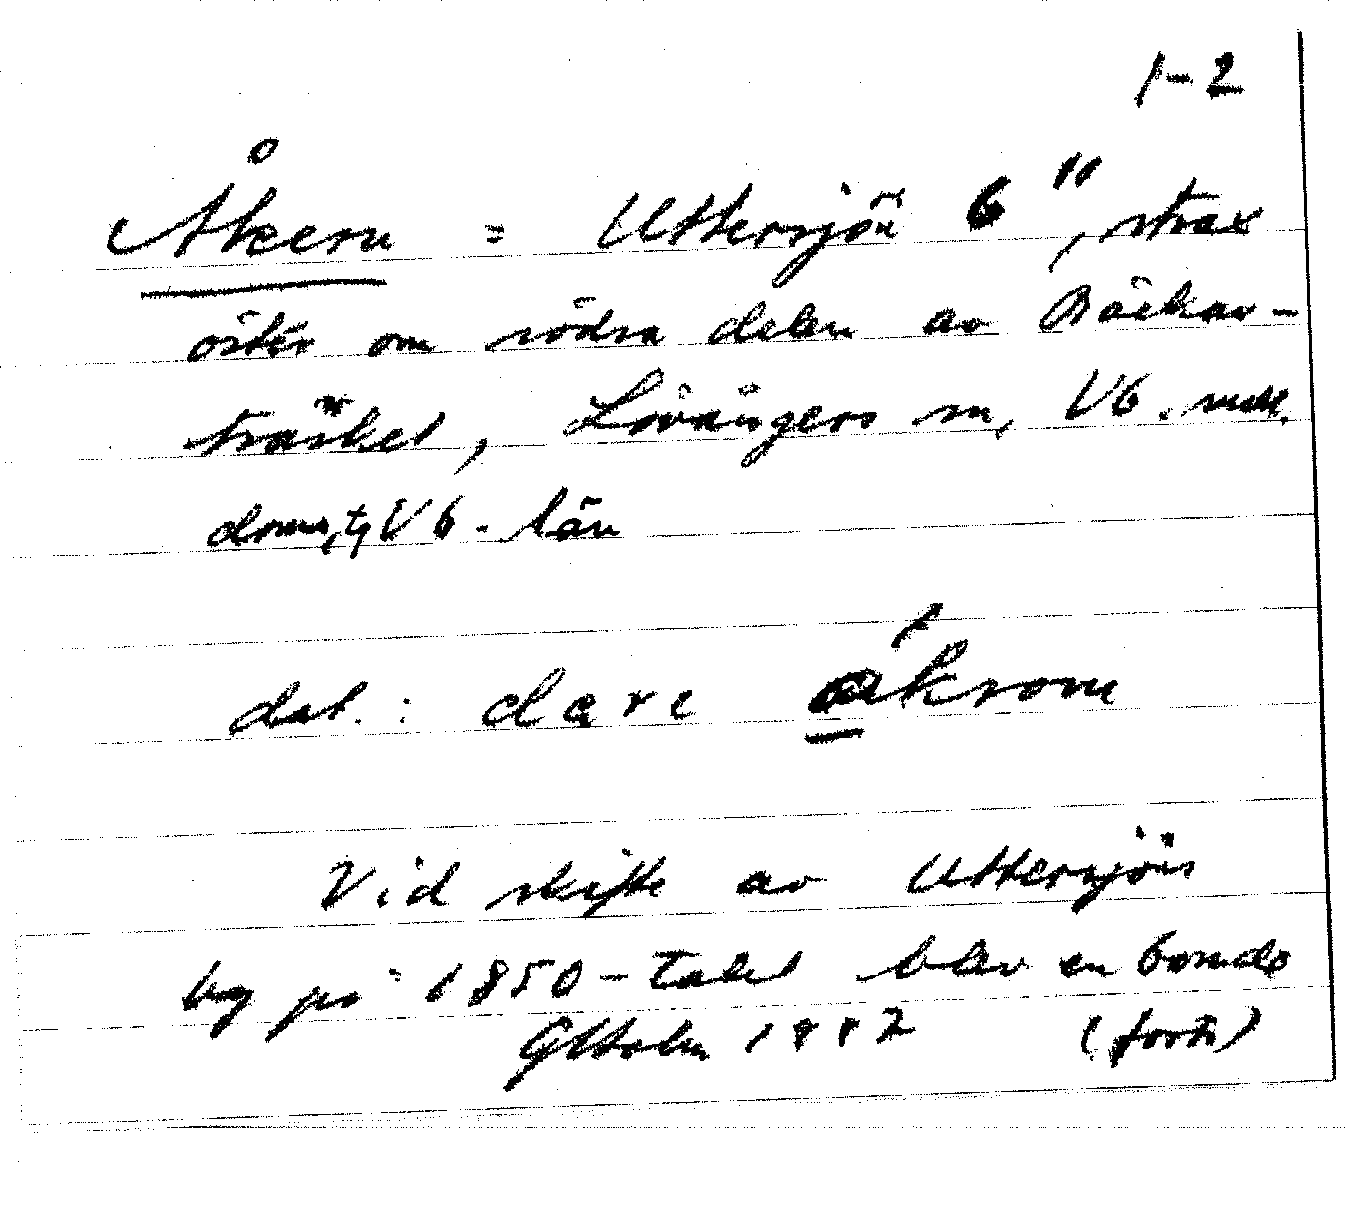 1-2
Åkern = Uttersjön 6", strax
öster om södra delen av Böckar-
träsket, Lövångers sn,
V6-län
dat.: dare åkrom
Vid skifte av Uttersjöns
by på 1850-talet blev en bonde
1982 (forts)